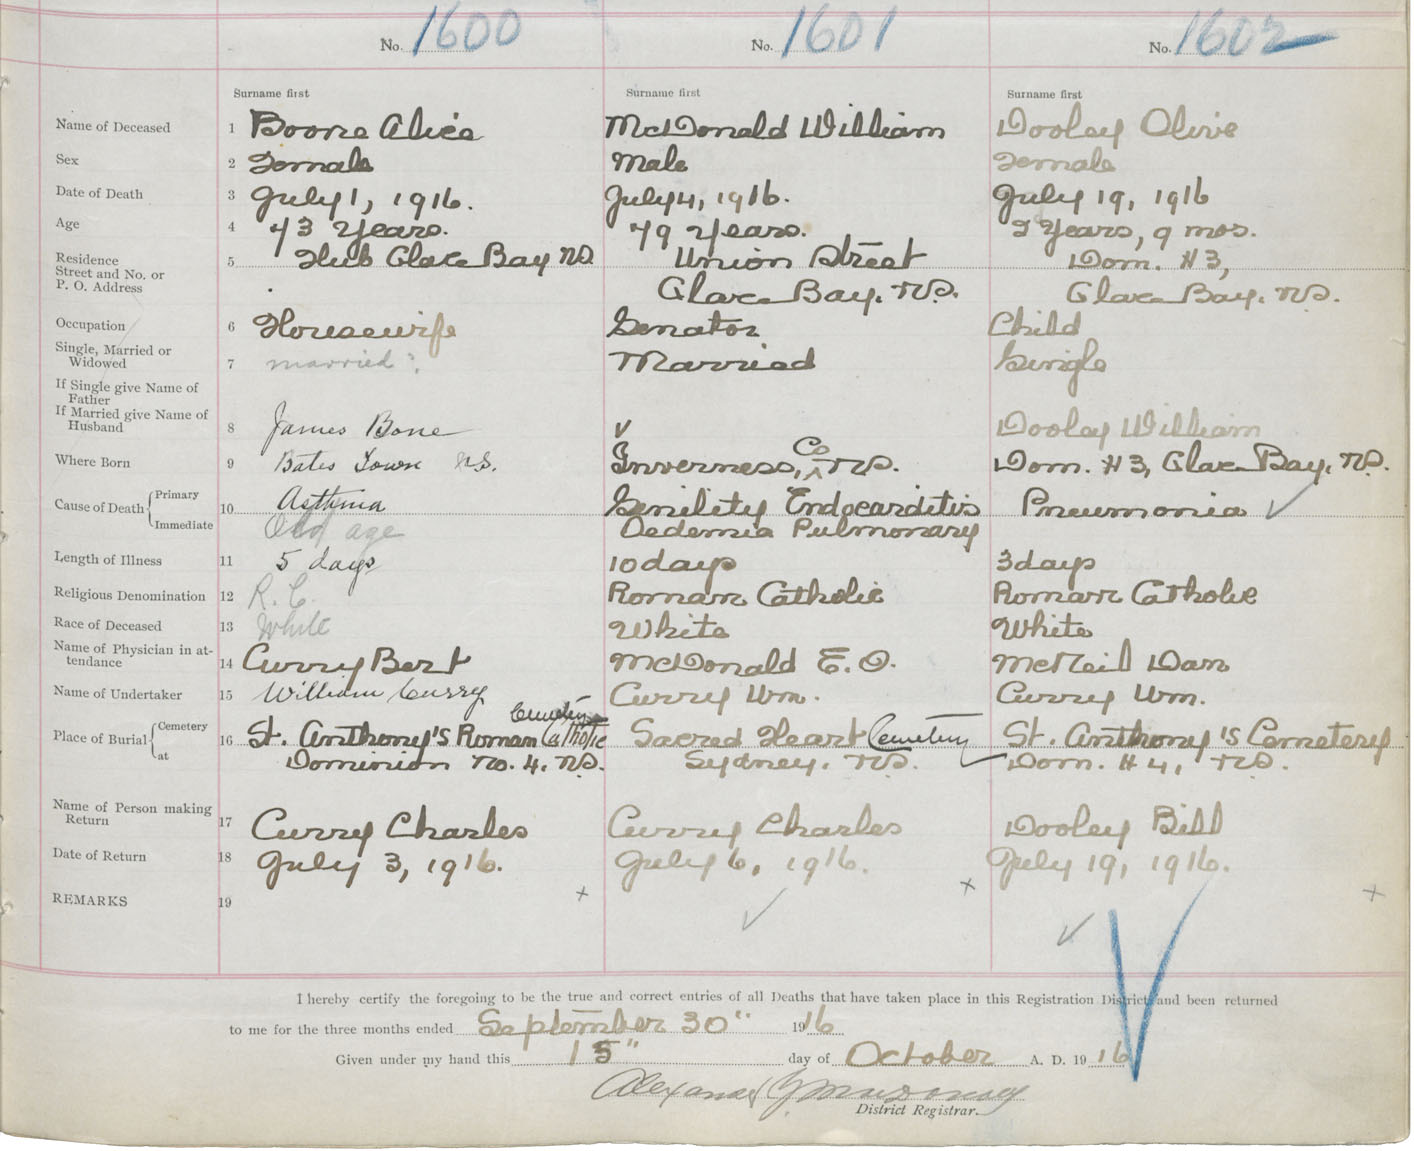 No. 1600 No. 1601 No. 1602
Surname first Surname first Surname first
Name of Deceased 1 Boone Alice McDonald William Dooley Olive
Sex 2 Female Male Female
Date of Death 3 July 1, 1916. July 4, 1916. July 19, 1916
Age 4 73 Years. 79 Years. 2 Years, 9 mos.
Residence 5 Hub Glace Bay N.S. Union Street Dom. #3,
Street and No. or
P. O. Address Glace Bay. N.S. Glace Bay. N.S.
Occupation 6 Housewife Senator Child
Single, Married or
Widowed 7 married Married Single
If Single give Name of
Father
If Married give Name of
Husband 8 James Bone Dooley William
Where Born 9 Bates Town N.S. Inverness, Co N.S. Dom. #3, Glace Bay. N.S.
Cause of Death Primary 10 Asthma Senility Endocarditis Pneumonia
Immediate Old age Oedemia Pulmonary
Length of Illness 11 5 days 10 days 3 days
Religious Denomination 12 R.C. Roman Catholic Roman Catholic
Race of Deceased 13 White White White
Name of Physician in at-
tendance 14 Curry Bert McDonald E. O. McNeil Dan
Name of Undertaker 15 William Curry Curry Wm. Curry Wm.
Place of Burial Cemetery 16 St. Anthony's Roman Catholic Cemetery Sacred Heart Cemetery St. Anthony's Cemetery
at Dominion No. 4. N.S. Sydney. N.S. Dom. #4, N.S.
Name of Person making
Return 17 Curry Charles Curry Charles Dooley Bill
Date of Return 18 July 3, 1916. July 6, 1916. July 19, 1916.
REMARKS 19
I hereby certify the foregoing to be the true and correct entries of all Deaths that have taken place in this Registration District and been returned
to me for the three months ended September 30" 1916
Given under my hand this 15" day of October A. D. 1916
Alexander
District Registrar.